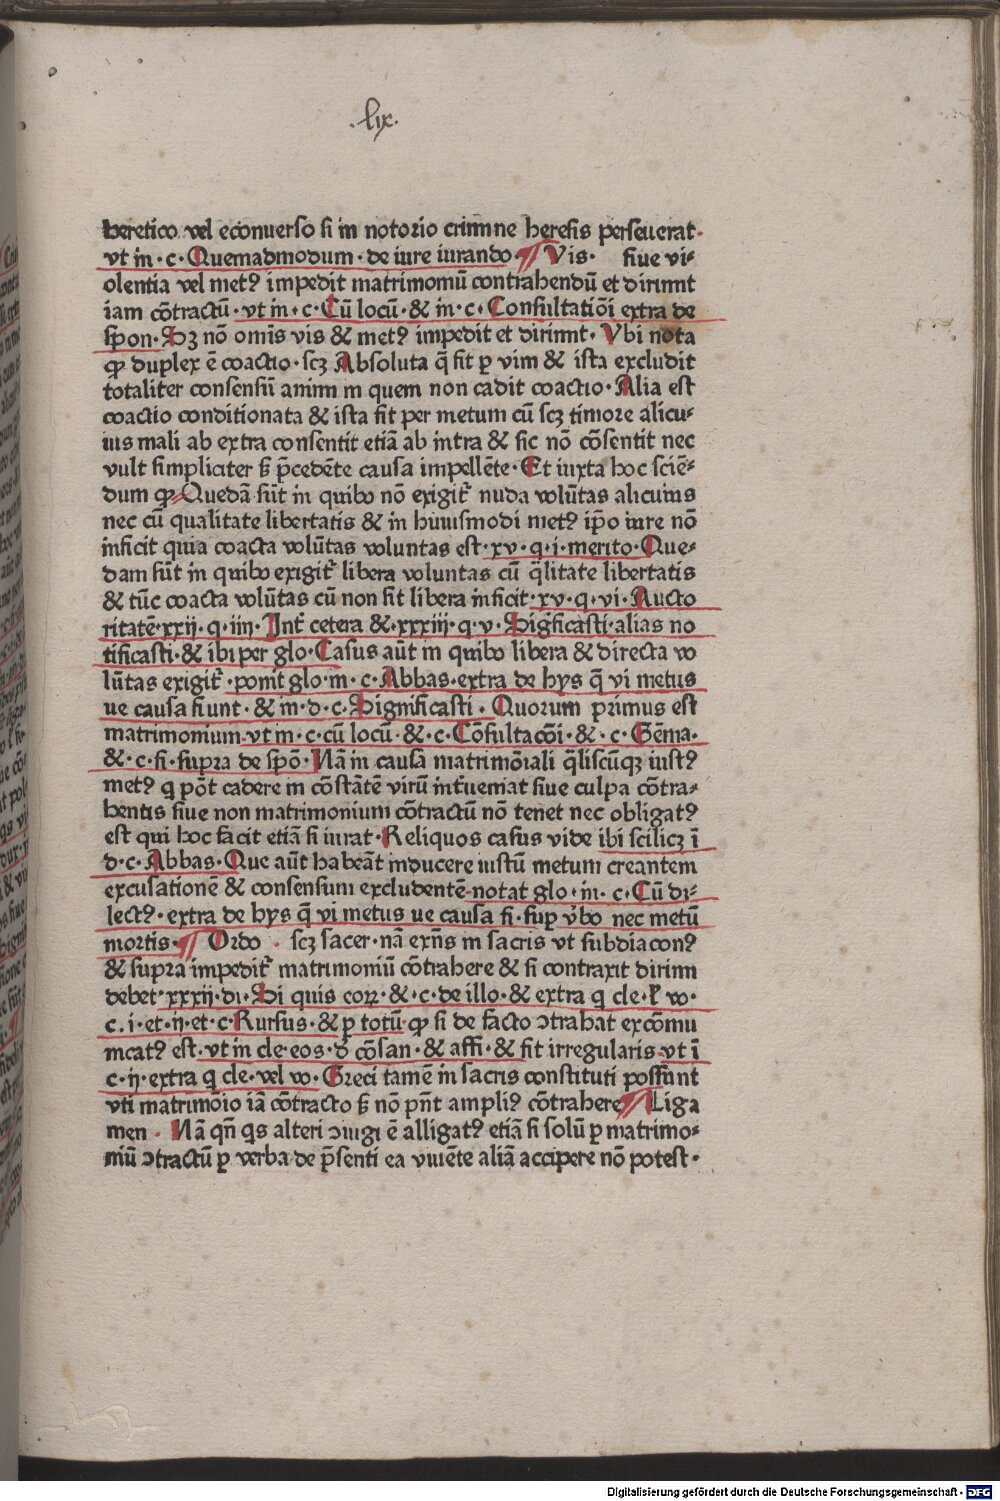 .lix.
heretico vel econuerso si in notorio crimine heresis perseuerat·
vt in·c·Quemadmodum·de iure iurando·¶ Vis· siue vi⸗
olentia vel metꝰ impedit matrimoniū contrahendū et dirimit
iam cōtractū·vt in·c·Cū locū·& in·c·Consultatiōi extra de
spon·Sꝫ nō omīs vis & metꝰ impedit et dirimit·Vbi nota
ꝙ duplex ē coactio·scꝫ Absoluta q̄ fit ꝑ vim & ista excludit
totaliter consensū animi in quem non cadit coactio·Alia est
coactio conditionata & ista fit per metum cū scꝫ timore alicu⸗
ius mali ab extra consentit etiā ab intra & sic nō cōsentit nec
vult simpliciter s̄ p̄cedēte causa impellēte·Et iuxta hoc sciē⸗
dum ꝙ Quedā sūt in quibo nō exigit᷑ nuda volūtas alicuius
nec cū qualitate libertatis & in huiusmodi metꝰ ip̄o iure nō
inficit quia coacta volūtas voluntas est·xv·q·i·merito·Que⸗
dam sūt in quibo exigit᷑ libera voluntas cū q̄litate libertatis
& tūc coacta volūtas cū non sit libera inficit·xv·q·vi·Aucto
ritatē·xxij·q·iiij·Int᷑ cetera &·xxxiij·q·v·Significasti·alias no
tificasti·& ibi per glo·Casus aūt in quibo libera & directa vo
lūtas exigit᷑·ponit glo·in·c·Abbas·extra de hys q̄ vi metus
ue causa fiunt·& in·d·c·Significasti·Quorum primus est
matrimonium·vt in·c·cū locū·&·c·Cōsultacōi·&·c·Gēma·
&·c·si·supra de spō·Nā in causa matrimōiali q̄liscūqꝫ iustꝰ
metꝰ q pōt cadere in cōstātē virū int᷑ueniat siue culpa cōtra⸗
hentis siue non matrimonium cōtractū nō tenet nec obligatꝰ
est qui hoc facit etiā si iurat·Reliquos casus vide ibi scilicꝫ ī
d·c·Abbas·Que aūt habeāt inducere iustū metum creantem
excusationē & consensum excludentē·notat glo·in·c·Cū di⸗
lectꝰ·extra de hys q̄ vi metus ue causa fi·suꝑ v̄bo nec metū
mortis·¶ Ordo · scꝫ sacer·nā exn̄s in sacris vt subdiaconꝰ
& supra impedit᷑ matrimoniū cōtrahere & si contraxit dirimi
debet·xxxij·di·Si quis eoꝝ·&·c·de illo·& extra q cle·l̄ vo·
c.i·et·ij·et·c·Rursus·& ꝑ totū·ꝙ si de facto ↄtrahat excōmu
nicatꝰ est·vt in cle·eos·d̄ cōsan·& affi·& fit irregularis·vt ī
c·ij·extra q cle·vel vo·Greci tamē in sacris constituti possunt
vti matrimōio iā cōtracto s̄ nō pn̄t ampliꝰ cōtrahere¶ Liga
men · Nā qn̄ qs alteri ↄiugi ē alligatꝰ etiā si solū ꝑ matrimo⸗
niū ↄtractū ꝑ verba de p̄senti ea viuēte aliā accipere nō potest·
Digitalisierung gefördert durch die Deutsche Forschungsgemeinschaft · DFG